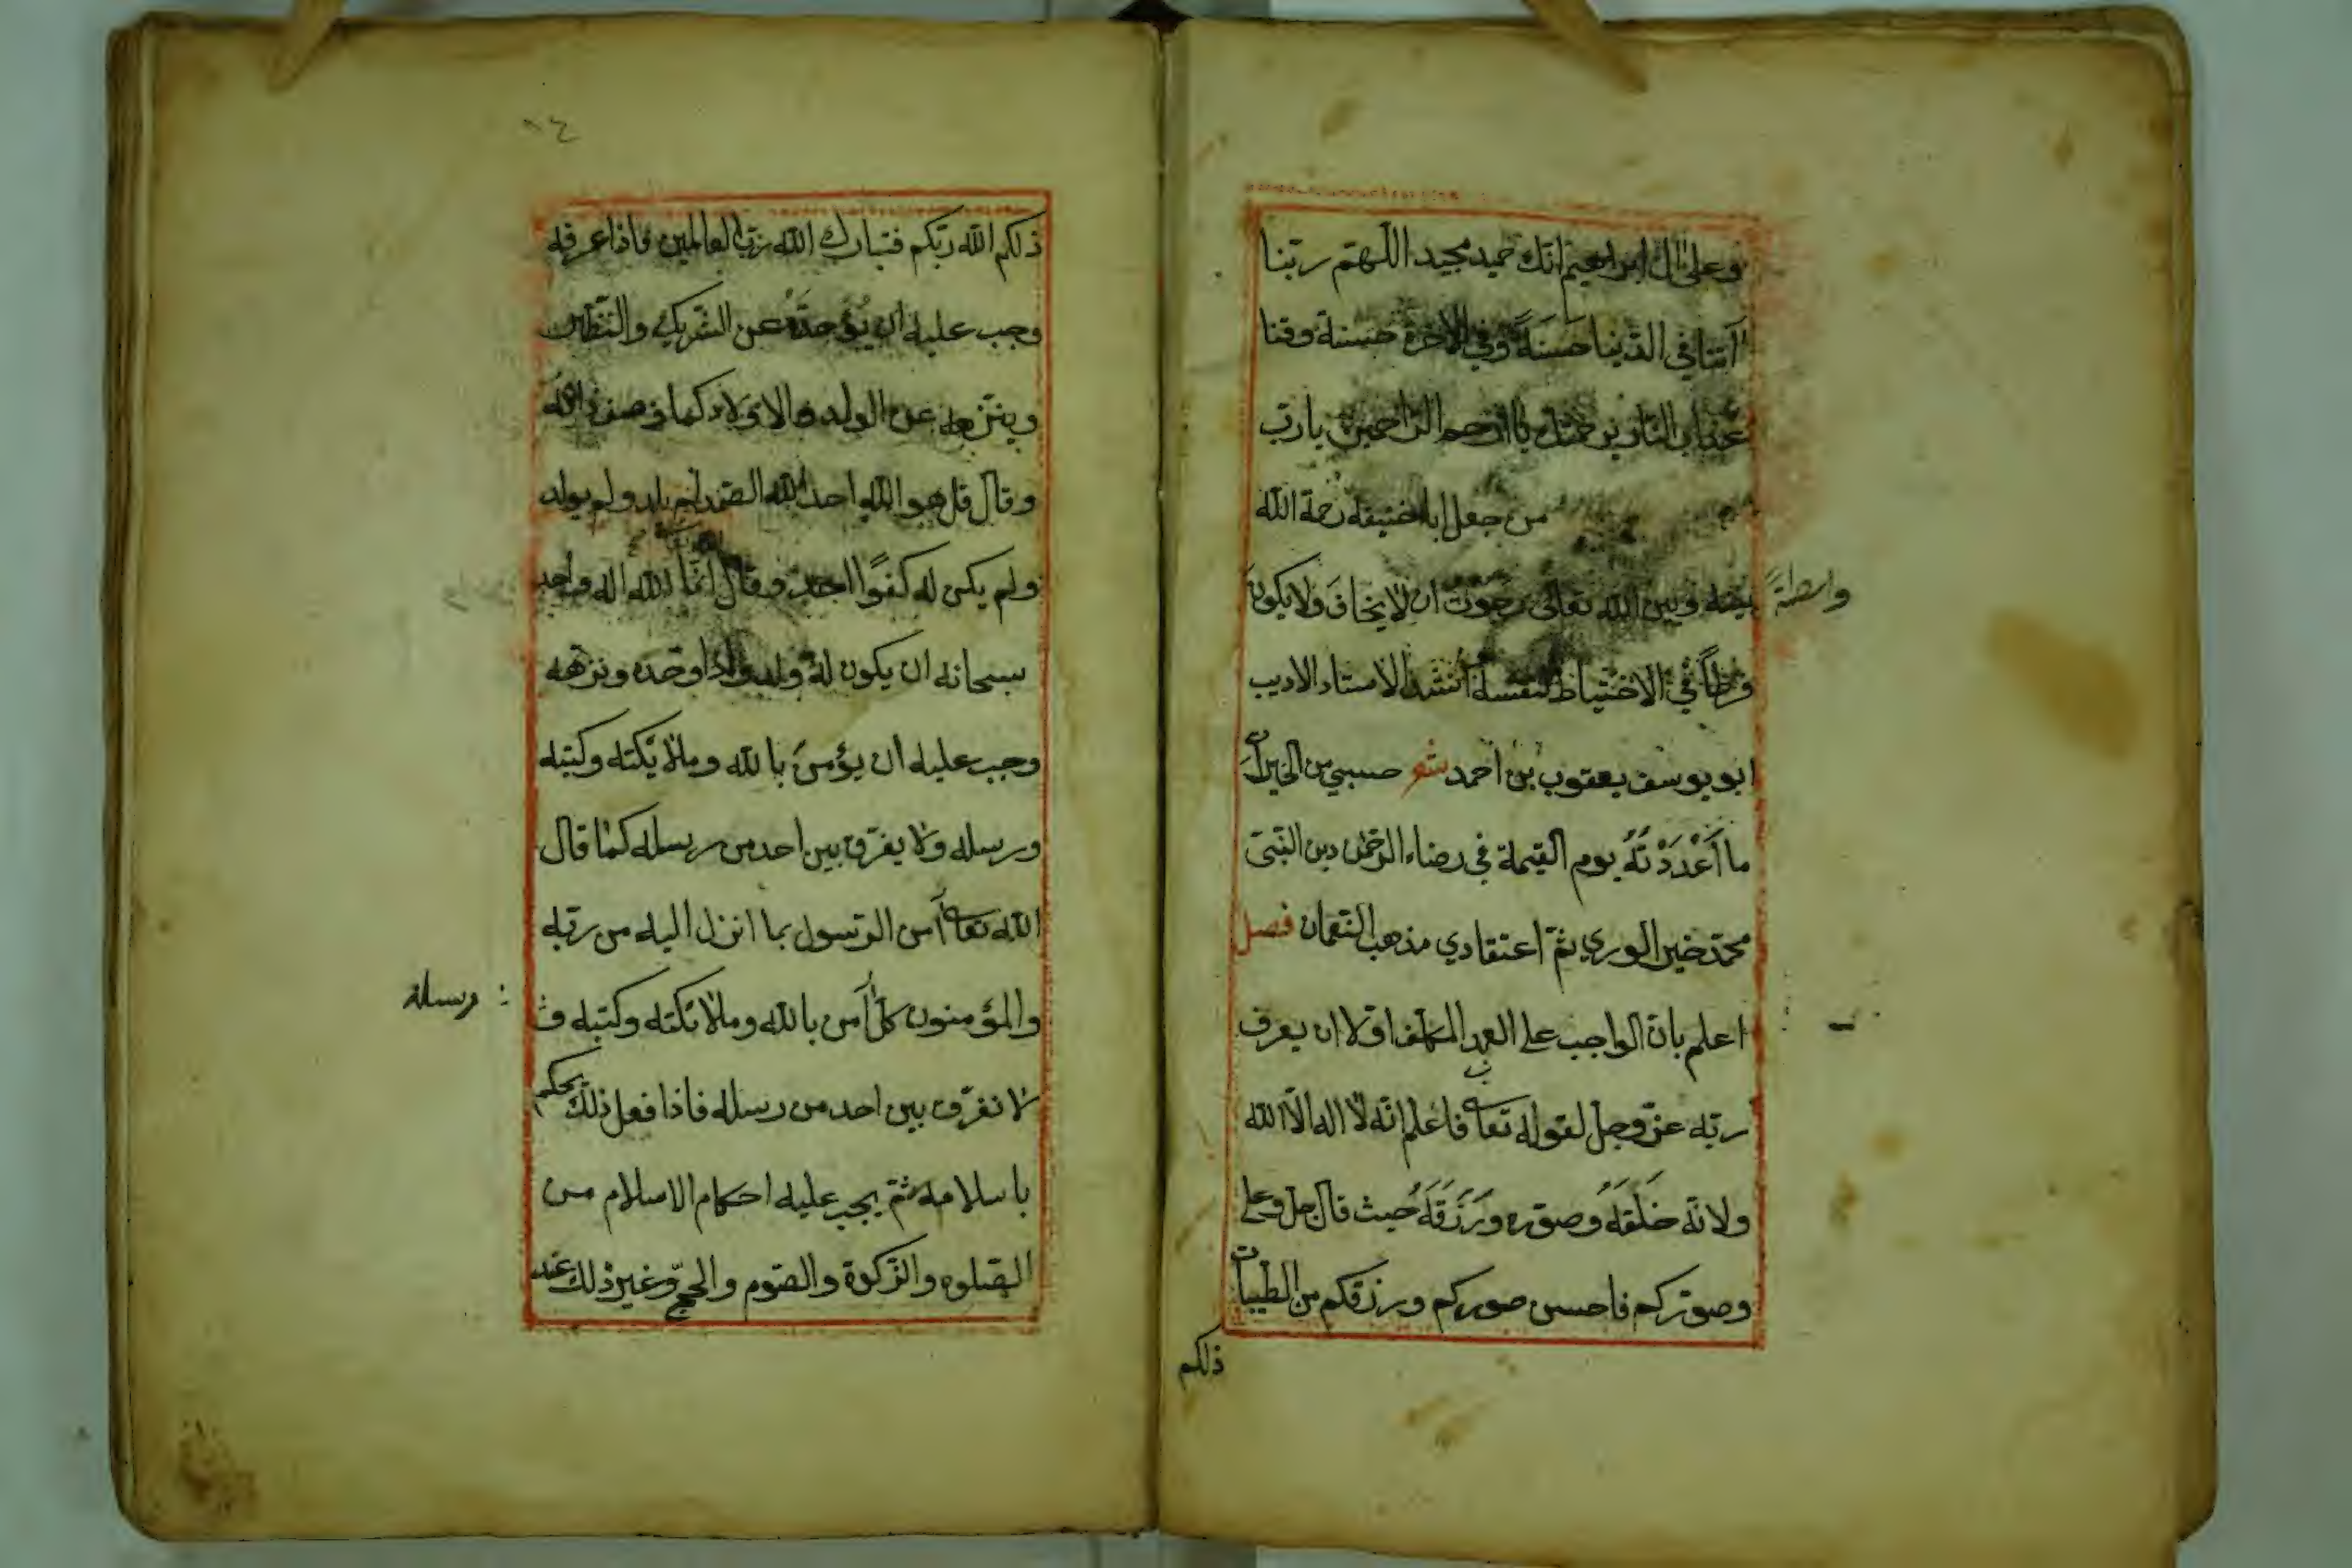 وعلى ال ابراهيم انك حميد مجيد اللهم ربنا
آتنا في الدنيا حسنةً وفي الاخرة حسنة وقنا
عذاب النار برحمتك يا ارحم الراحمين يارب
من جعل ابا حنيفه رحمة الله
واسطةً
بينه وبين الله تعالى رجوت ان لا يخاف ولا يكون
فرطاً في الاحتياط لنفسه انشد الاستاد الاديب
ابو يوسف يعقوب بن احمد شعر حسبي من الخيرات
ما اَعْدَدْتُهُ يوم القيمة في رضاء الرحمٰن دين النبيّ
محمّد خير الوري ثمّ اعتقادي مذهب النعمان فصل
اعلم بان الواجب على العبد المكلف اوّلا ان يعرف
ربّه عزّ وجلّ لقوله تعا فاعلم انّه لا اله الّا الله
ولانّه خَلَقَهُ وصوّره ورَزَقَهُ حيث قال جلّ وعلى
وصوّركم فاحسن صوركم ورزقكم من الطيبات
ذلكم
١٤
ذلكم الله ربّكم فتبارك الله ربّ العالمين فاذا عرفه
وجب عليه ان يؤحدّه عن الشريك والنظير
وينزهه عن الولد والاولاد كما وصف ذاته
وقال قل هو الله احد الله الصّمد لم يلد ولم يولد
ولم يكن له كفوًا احد وقال انّما الله اله واحد
سبحانه ان يكون له ولد واذا وحّده ونزهه
وجب عليه ان يؤمن بالله وملائكته وكتبه
ورسله ولا يفرّق بين احد من رسله كما قال
الله تعا آمن الرّسول بما انزل اليه من ربّه
والمؤمنون كلّ آمن بالله وملائكته وكتبه و
ورسله
لا نفرّق بين احد من رسله فاذا فعل ذلك يحكم
باسلامه ثمّ يجب عليه احكام الاسلام من
الصّلوه والزّكوة والصّوم والحجّ وغير ذلك عند